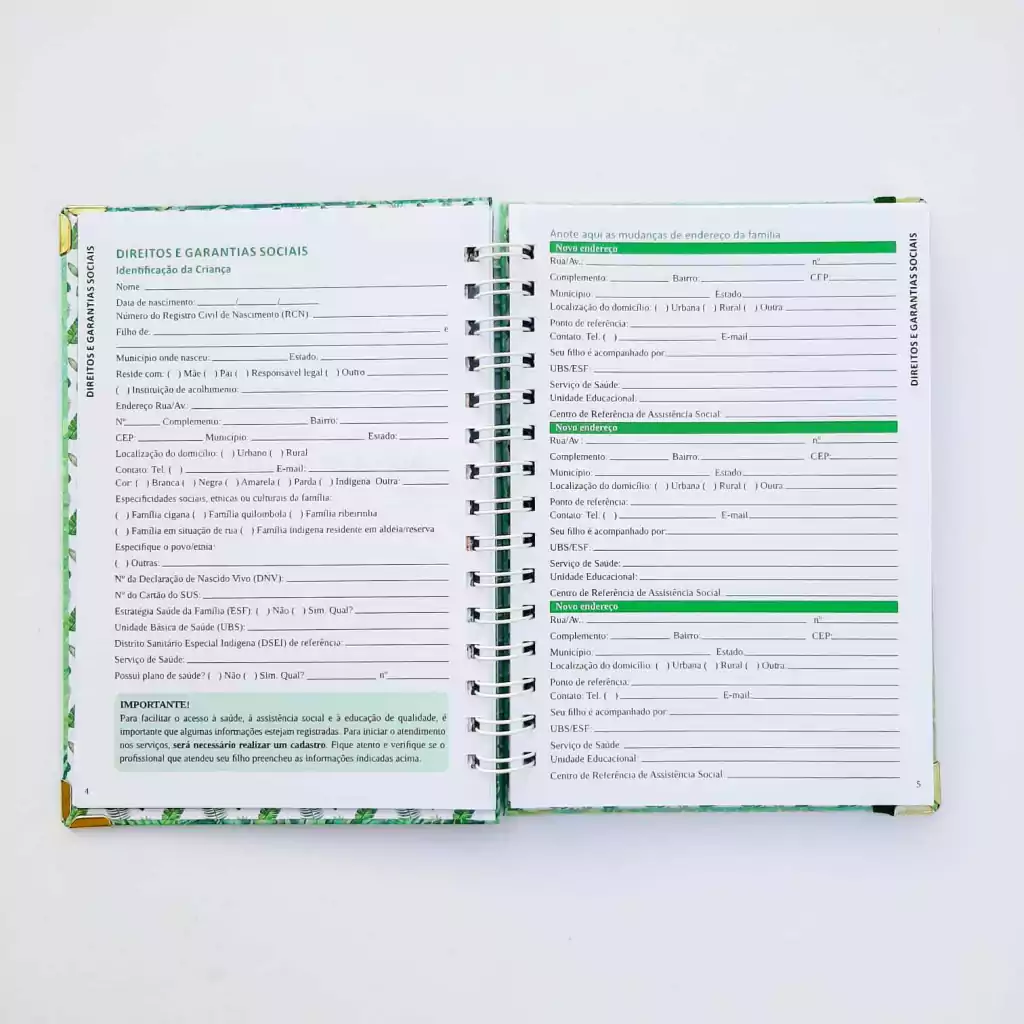 DIREITOS E GARANTIAS SOCIAIS
DIREITOS E GARANTIAS SOCIAIS
Identificação da Criança
Nome
Data de nascimento: ______/______/______
Número do Registro Civil de Nascimento (RCN):
Filho de: e
Município onde nasceu: Estado:
Reside com: ( ) Mãe ( ) Pai ( ) Responsável legal ( ) Outro
( ) Instituição de acolhimento:
Endereço Rua/Av.:
Nº Complemento: Bairro:
CEP: Município: Estado:
Localização do domicílio: ( ) Urbano ( ) Rural
Contato: Tel. ( ) E-mail:
Cor: ( ) Branca ( ) Negra ( ) Amarela ( ) Parda ( ) Indígena Outra:
Especificidades sociais, étnicas ou culturais da família:
( ) Família cigana ( ) Família quilombola ( ) Família ribeirinha
( ) Família em situação de rua ( ) Família indígena residente em aldeia/reserva
Especifique o povo/etnia:
( ) Outras:
Nº da Declaração de Nascido Vivo (DNV):
Nº do Cartão do SUS:
Estratégia Saúde da Família (ESF): ( ) Não ( ) Sim. Qual?
Unidade Básica de Saúde (UBS):
Distrito Sanitário Especial Indígena (DSEI) de referência:
Serviço de Saúde:
Possui plano de saúde? ( ) Não ( ) Sim. Qual? nº
IMPORTANTE!
Para facilitar o acesso à saúde, à assistência social e à educação de qualidade, é
importante que algumas informações estejam registradas. Para iniciar o atendimento
nos serviços, será necessário realizar um cadastro. Fique atento e verifique se o
profissional que atendeu seu filho preencheu as informações indicadas acima.
4
Anote aqui as mudanças de endereço da família
Novo endereço
Rua/Av.: nº
Complemento: Bairro: CEP:
Município: Estado:
Localização do domicílio: ( ) Urbana ( ) Rural ( ) Outra
Ponto de referência:
Contato: Tel. ( ) E-mail
Seu filho é acompanhado por:
UBS/ESF:
Serviço de Saúde:
Unidade Educacional:
Centro de Referência de Assistência Social:
Novo endereço
Rua/Av.: nº
Complemento: Bairro: CEP:
Município: Estado:
Localização do domicílio: ( ) Urbana ( ) Rural ( ) Outra
Ponto de referência:
Contato: Tel. ( ) E-mail
Seu filho é acompanhado por:
UBS/ESF:
Serviço de Saúde:
Unidade Educacional:
Centro de Referência de Assistência Social
Novo endereço
Rua/Av.: nº
Complemento: Bairro: CEP:
Município: Estado:
Localização do domicílio: ( ) Urbana ( ) Rural ( ) Outra:
Ponto de referência:
Contato: Tel. ( ) E-mail:
Seu filho é acompanhado por:
UBS/ESF:
Serviço de Saúde
Unidade Educacional:
Centro de Referência de Assistência Social
5
DIREITOS E GARANTIAS SOCIAIS